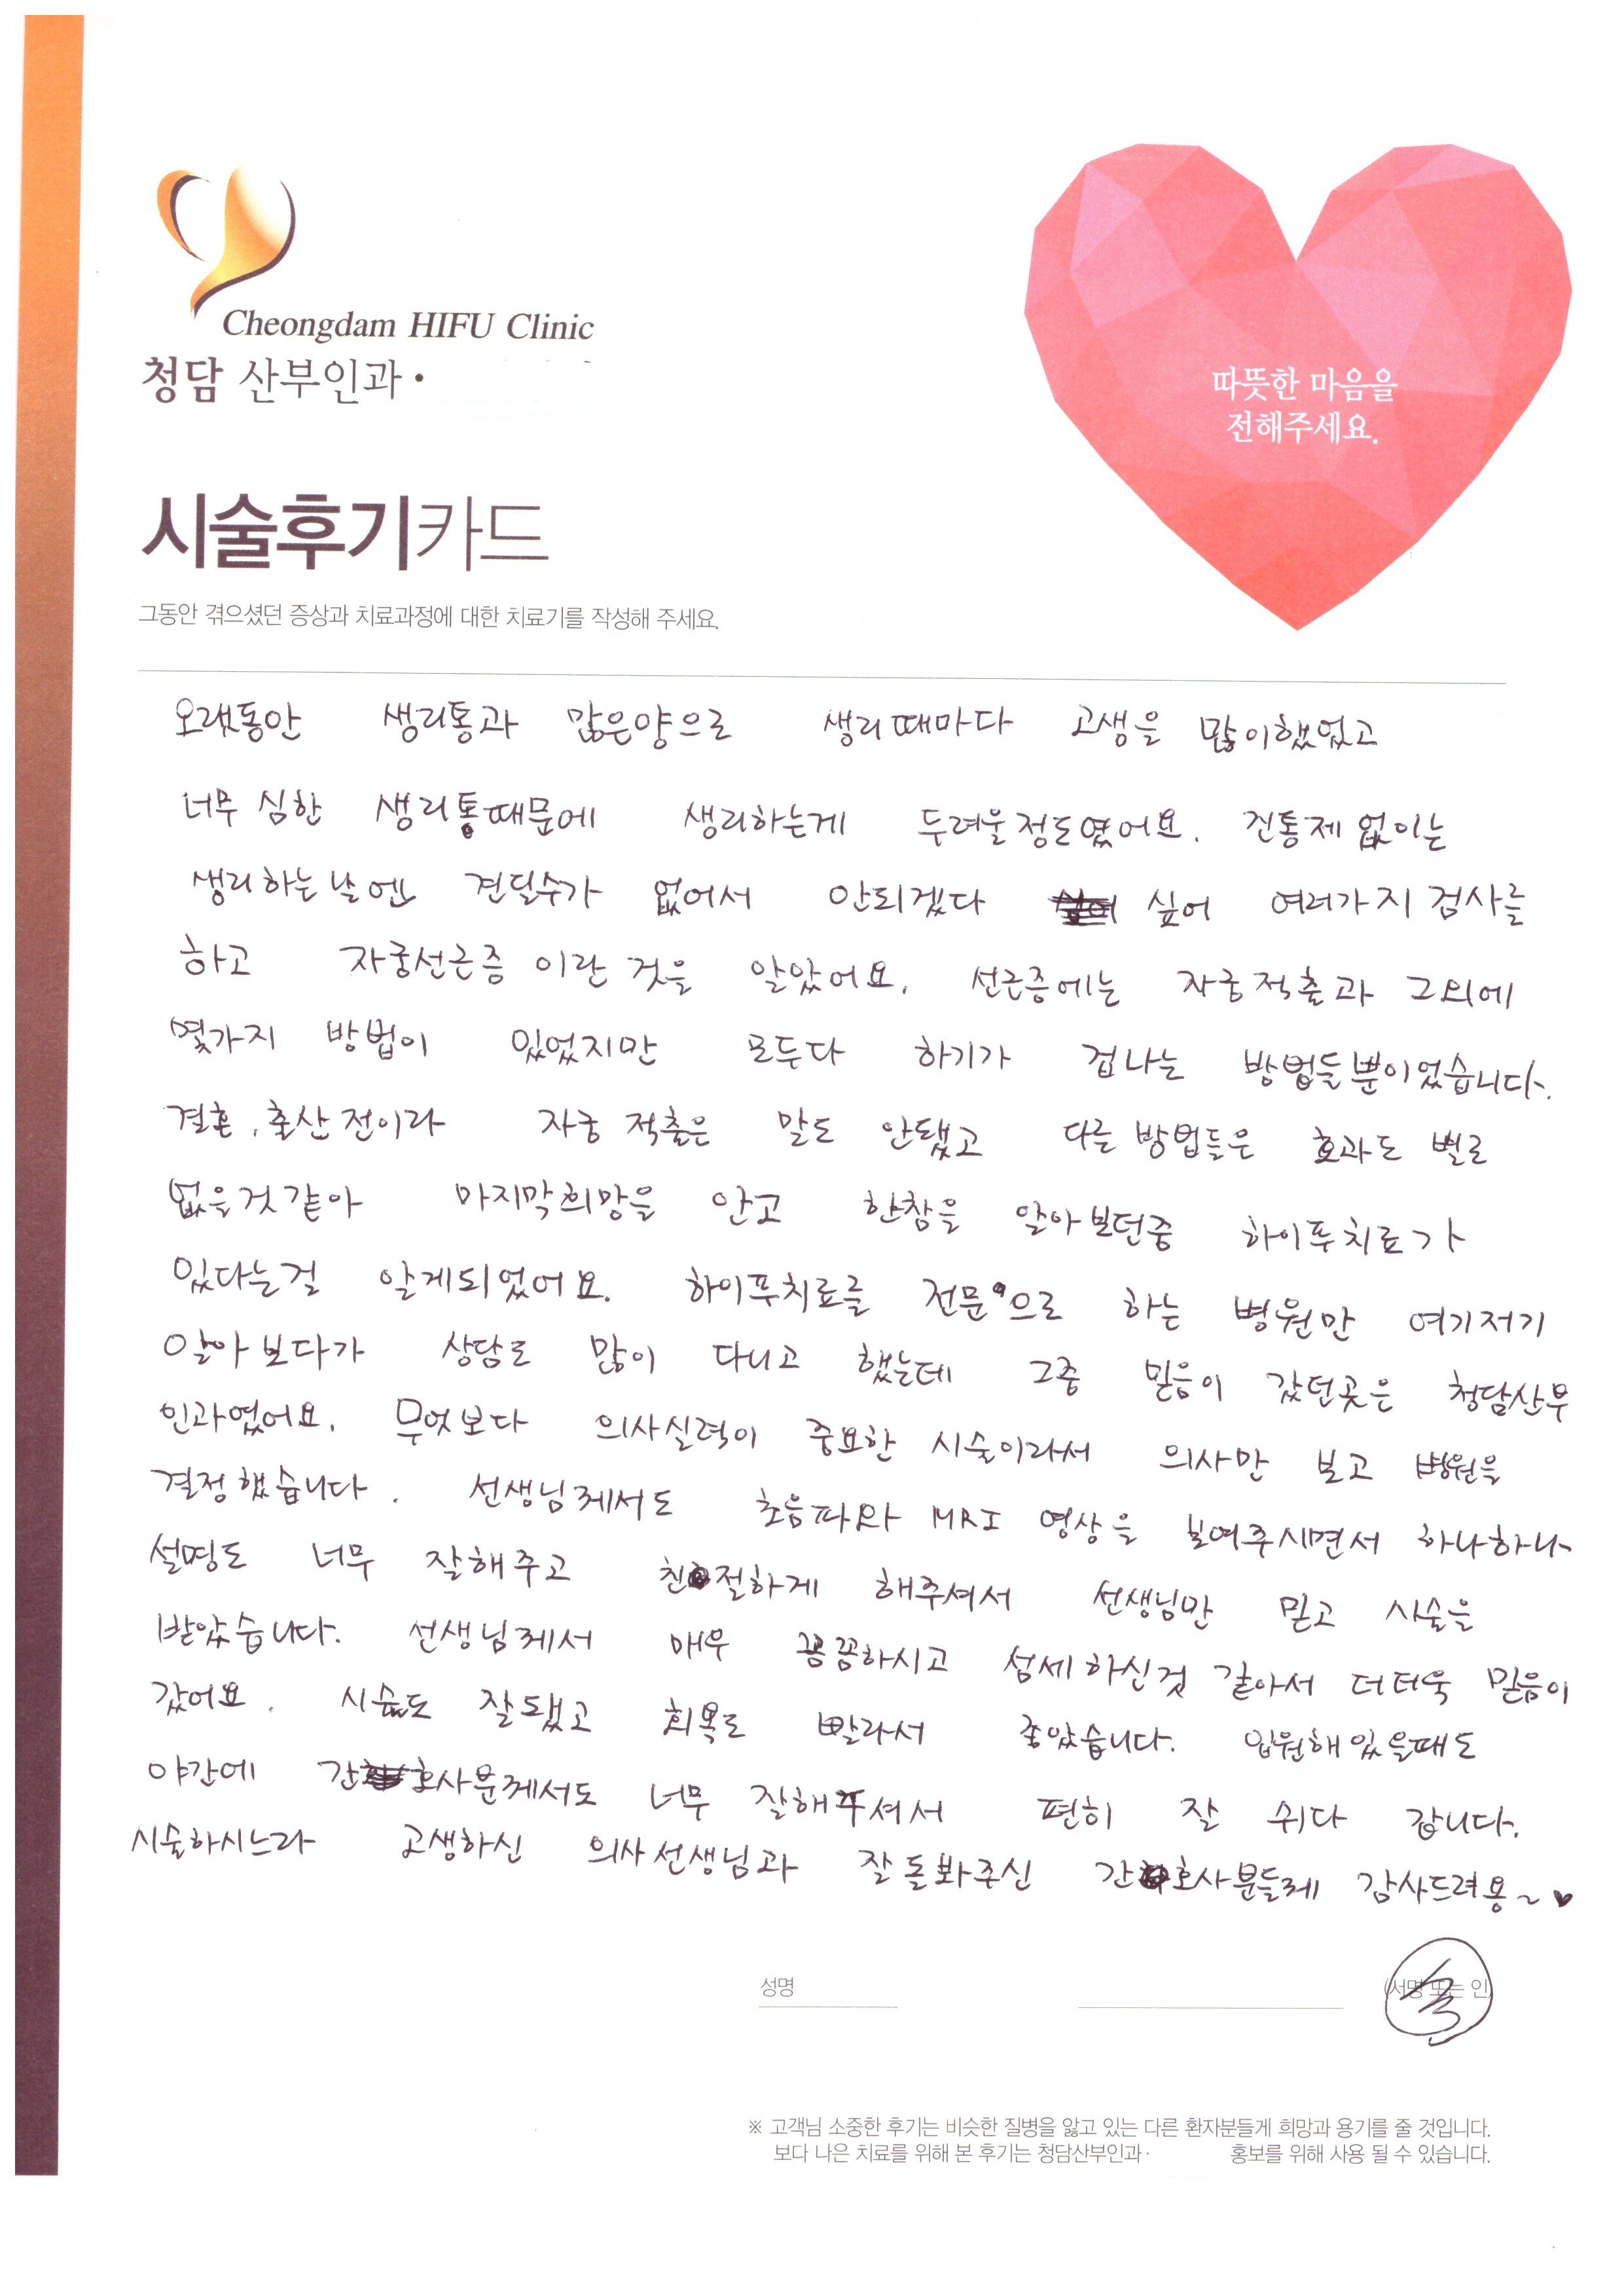 Cheongdam HIFU Clinic
청담 산부인과·
따뜻한 마음을
전해주세요.
시술후기카드
그동안 겪으셨던 증상과 치료과정에 대한 치료기를 작성해 주세요.
오랫동안 생리통과 많은양으로 생리때마다 고생을 많이했었고
너무 심한 생리통때문에 생리하는게 두려울정도였어요. 진통제 없이는
생리하는날엔 견딜수가 없어서 안되겠다 싶어 여러가지 검사를
하고 자궁선근증 이란 것을 알았어요. 선근증에는 자궁적출과 그외에
몇가지 방법이 있었지만 모두다 하기가 겁나는 방법들뿐이었습니다.
결혼, 출산 전이라 자궁 적출은 말도 안됐고 다른 방법들은 효과도 별로
없을것같아 마지막희망을 안고 한참을 알아보던중 하이푸치료가
있다는걸 알게되었어요. 하이푸치료를 전문으로 하는 병원만 여기저기
알아보다가 상담도 많이 다니고 했는데 그중 믿음이 갔던곳은 청담산부
인과였어요. 무엇보다 의사실력이 중요한 시술이라서 의사만 보고 병원을
결정했습니다. 선생님께서도 초음파와 MRI 영상을 보여주시면서 하나하나
설명도 너무 잘해주고 친절하게 해주셔서 선생님만 믿고 시술을
받았습니다. 선생님께서 매우 꼼꼼하시고 섬세하신것 같아서 더더욱 믿음이
갔어요. 시술도 잘됐고 회복도 빨라서 좋았습니다. 입원해있을때도
야간에 간호사분께서도 너무 잘해주셔서 편히 잘 쉬다 갑니다.
시술하시느라 고생하신 의사선생님과 잘돌봐주신 간호사분들께 감사드려용~♥
성명 (서명 또는 인)
※ 고객님 소중한 후기는 비슷한 질병을 앓고 있는 다른 환자분들게 희망과 용기를 줄 것입니다.
보다 나은 치료를 위해 본 후기는 청담산부인과· 홍보를 위해 사용 될 수 있습니다.